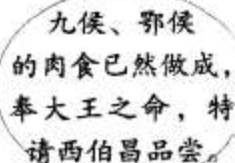 九侯、鄂侯
的肉食已然做成，
奉大王之命，特
请西伯昌品尝。